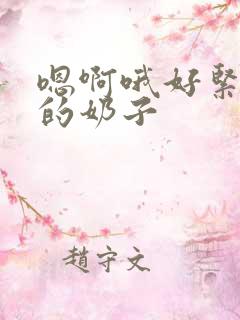 嗯啊哦好紧
的奶子
趙守文